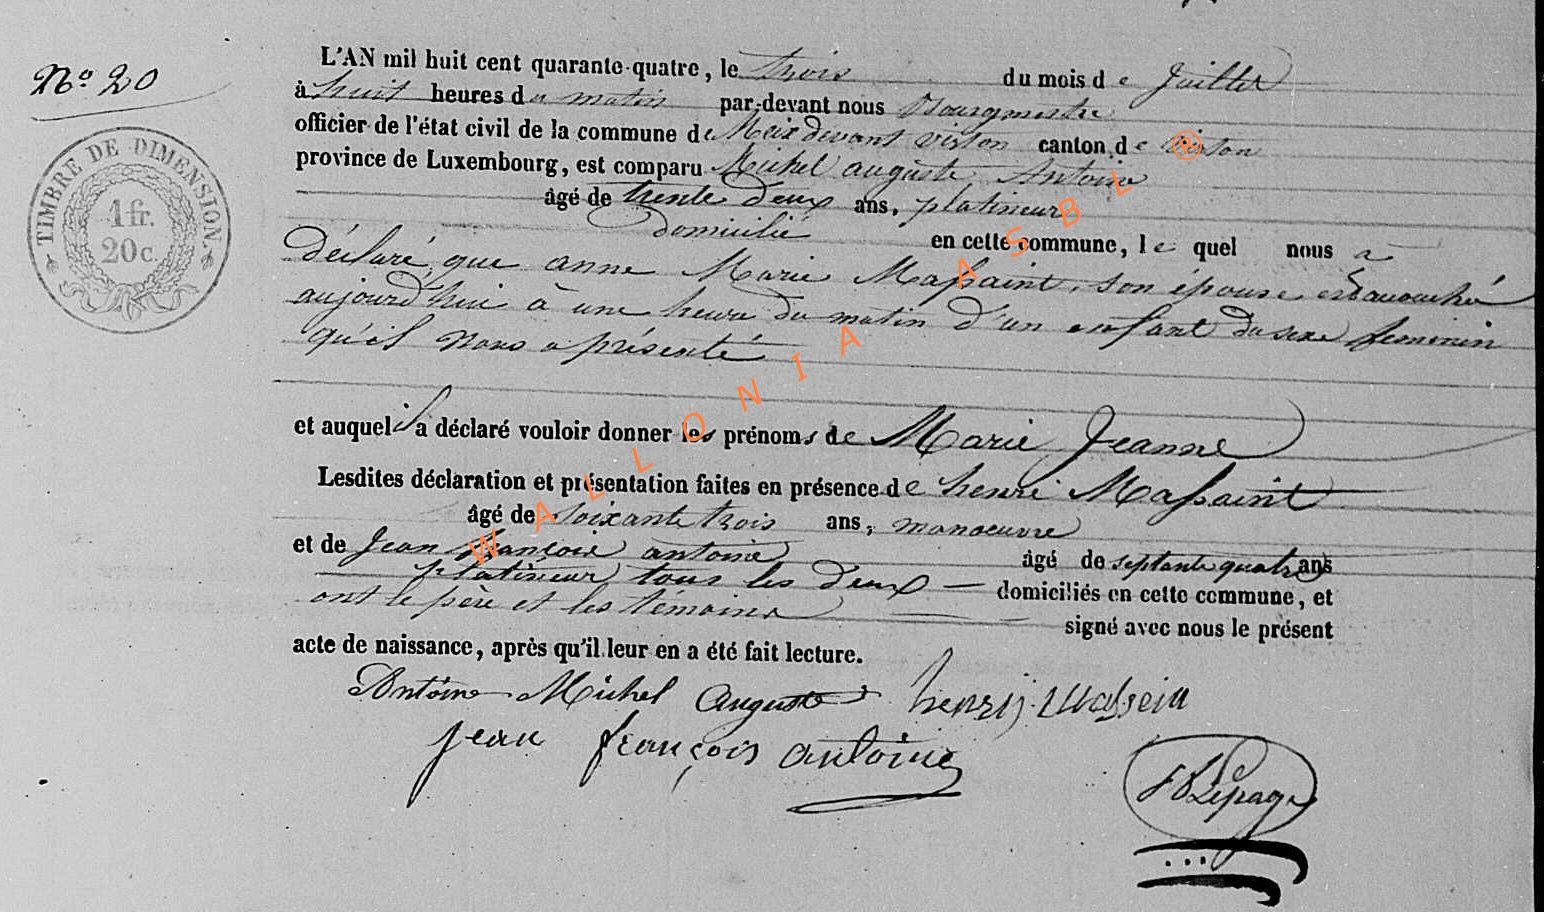 N.o 20
TIMBRE DE DIMENSION.
1 fr.
20 c.
L'AN mil huit cent quarante-quatre, le trois du mois de Juillet
à huit heures du matin par-devant nous Bourgmestre
officier de l'état civil de la commune de Meix devant virton canton de virton
province de Luxembourg, est comparu Michel auguste Antoine
âgé de trente deux ans, platineur
domicilié en cette commune, le quel nous a
déclaré que anne Marie Massaint, son épouse est accouchée
aujourd'hui à une heure du matin d'un enfant du sexe feminin
qu'il nous a présenté
et auquel il a déclaré vouloir donner les prénoms de Marie Jeanne
Lesdites déclaration et présentation faites en présence de henri Massaint
âgé de soixante trois ans, manoeuvre
et de Jean françois antoine âgé de septante quatre ans
platineur tous les deux domiciliés en cette commune, et
ont le père et les témoins signé avec nous le présent
acte de naissance, après qu'il leur en a été fait lecture.
Antoine Michel Auguste henrÿ Massein
jean françois antoine
Lepage
WALLONIA ASBL ®